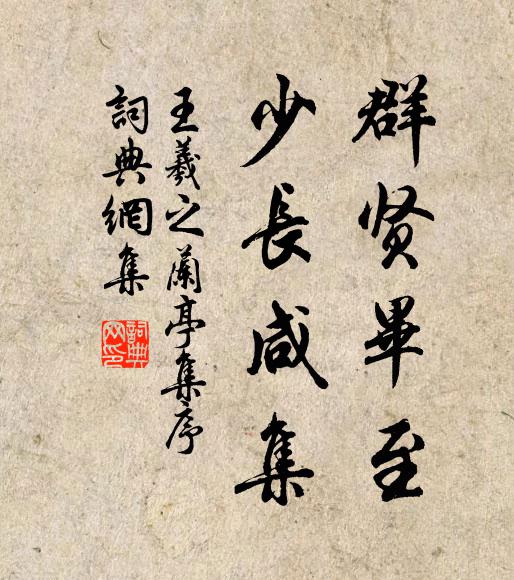 群贤畢至
少長咸集
王羲之蘭亭集序
詞典網集
詞典網印